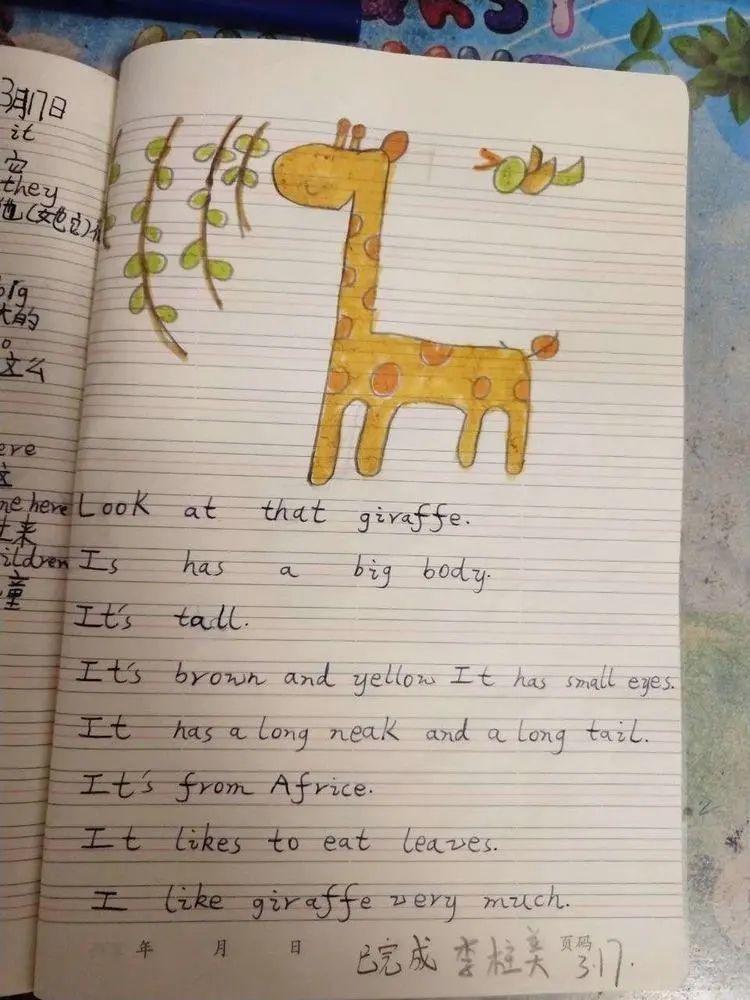 3月17日
it
它
they
他(她它)
big
大的
so
这么
here
这
me here
过来
children
儿童
Look at that giraffe.
Is has a big body.
It's tall.
It's brown and yellow It has small eyes.
It has a long neak and a long tail.
It's from Africe.
It likes to eat leaves.
I like giraffe very much.
年 月 日
已完成 李桂美 页码 3.17.